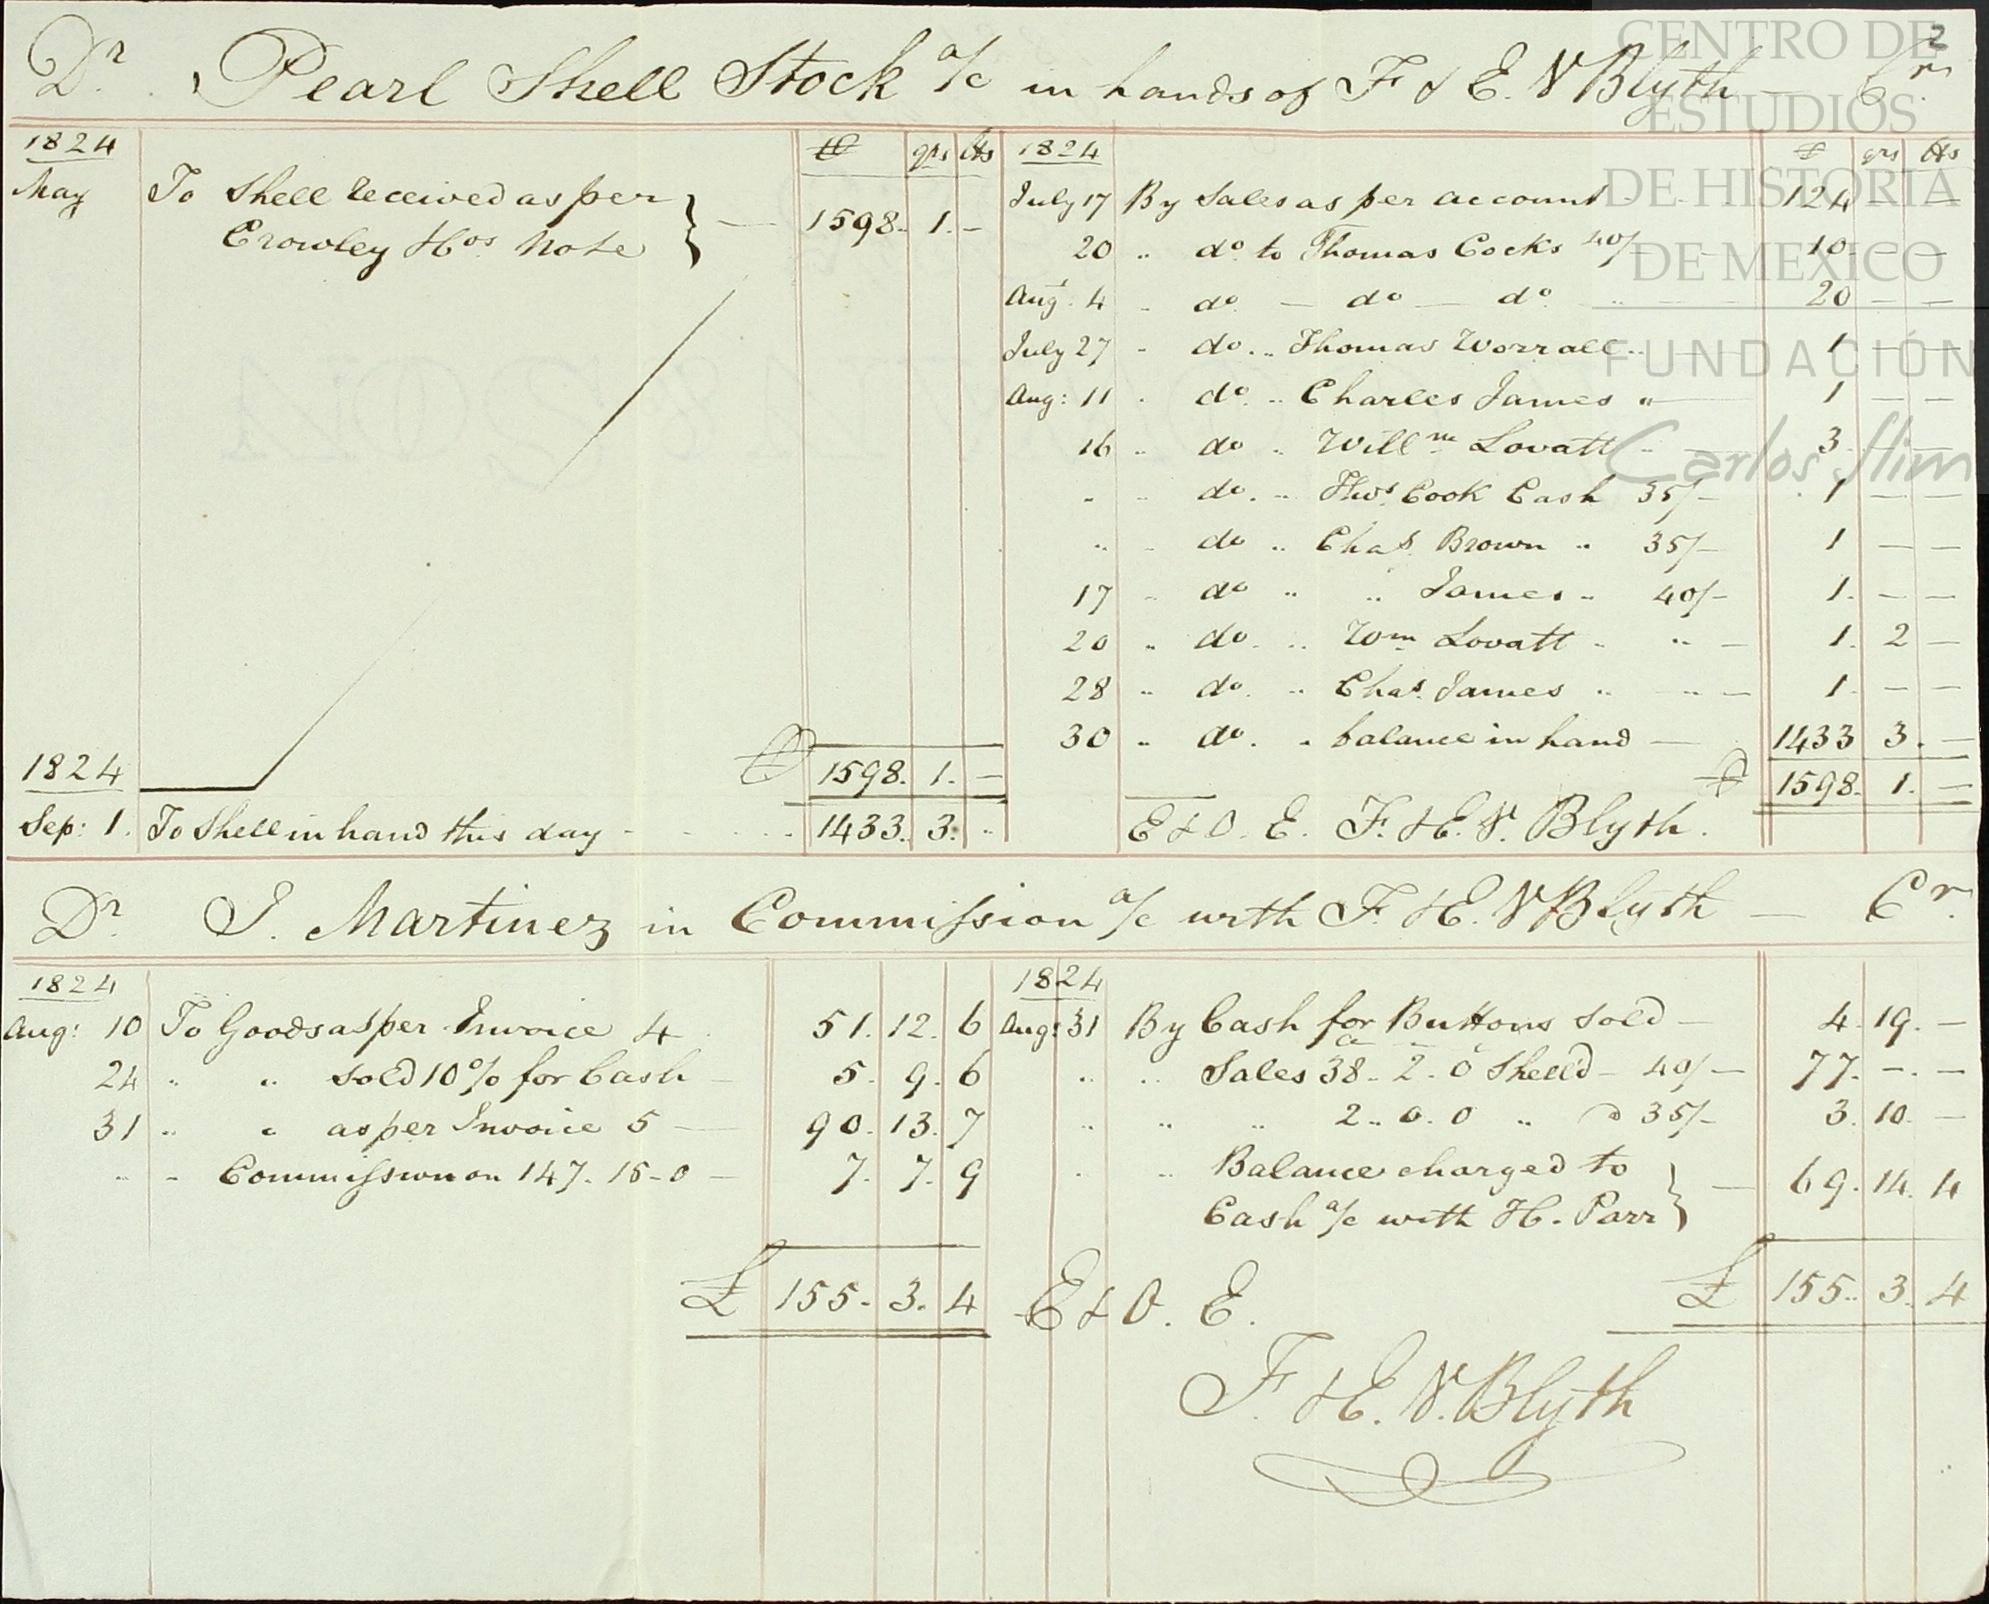 2
CENTRO DE
ESTUDIOS
DE HISTORIA
DE MEXICO
FUNDACIÓN
Carlos Slim
Dr. Pearl Shell Stock a/c in hands of F & E. V Blyth — Cr.
1824
qrs lbs
May To Shell received as per
Crowley & Cos. Note } — 1598. 1. -
1598. 1. -
1824
Sep: 1. To Shell in hand this day - 1433. 3. ..
1824
qrs lbs
July 17 By Sales as per account 124 - -
20 .. do. to Thomas Cocks 40/- 10 - -
Aug. 4 - do - do - do 20 - -
July 27 - do. .. Thomas Worrall .. 1 - -
Aug: 11 . do. .. Charles James " 1 - -
16 .. do .. Willm. Lovatt .. 3 - -
- - do. .. Thos. Cook Cash 35/- 1 - -
.. - do .. Chas. Brown .. 35/- 1 - -
17 - do .. .. James .. 40/- 1. - -
20 .. do. .. Wm Lovatt - .. - 1. 2 -
28 .. do. .. Chas. James .. .. - 1. - -
30 .. do. . balance in hand — 1433 3. -
1598. 1. -
E & O. E. F. & E. V. Blyth.
Dr. J. Martinez in Commission a/c with F. & E. V Blyth — Cr.
1824
Aug: 10 To Goods as per Invoice 4 51. 12. 6
24 .. .. sold 10% for Cash — 5. 9. 6
31 .. " as per Invoice 5 — 90. 13. 7
.. - Commission on 147. 15-0 — 7. 7. 9
£ 155. 3. 4
1824
Aug: 31 By Cash for Buttons sold — 4. 19. -
.. .. Sales 38.. 2. 0 Shell @ 40/- 77. -. -
.. .. .. 2.. 0. 0 .. @ 35/- 3. 10. -
. .. Balance charged to
Cash a/c with H. Parr } — 69. 14. 4
£ 155.. 3. 4
E & O. E.
F. & E. V. Blyth